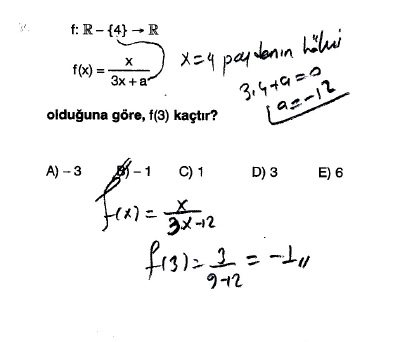 f: ℝ – {4} → ℝ
f(x) = x / 3x + a
x=4 paydanın kökü
3.4+a=0
a=-12
olduğuna göre, f(3) kaçtır?
A) – 3 B) – 1 C) 1 D) 3 E) 6
f(x) = x / 3x-12
f(3) = 3 / 9-12 = -1,,